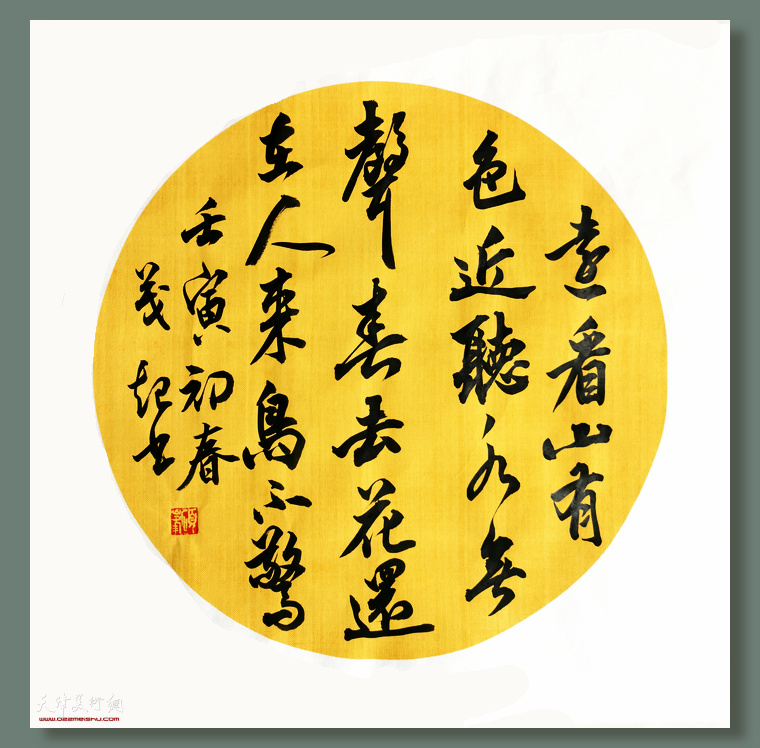 遠看山有
色近聽水無
聲春去花還
在人來鳥不驚
壬寅初春
茂起書
天津美术網
www.022meishu.com